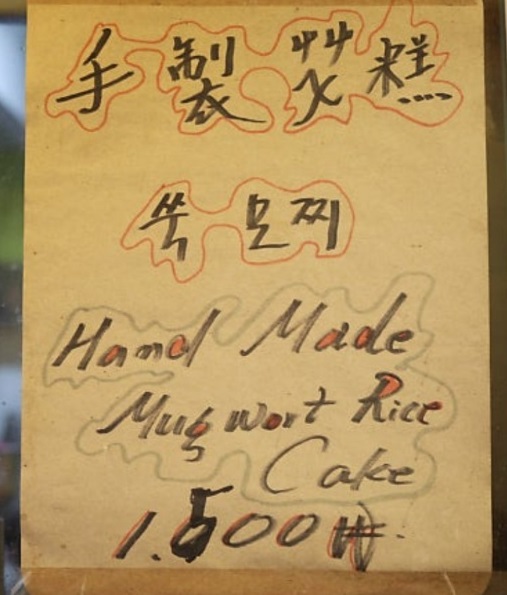 手製艾糕
쑥 모찌
Hand Made
Mug wort Rice
Cake
1.500₩.